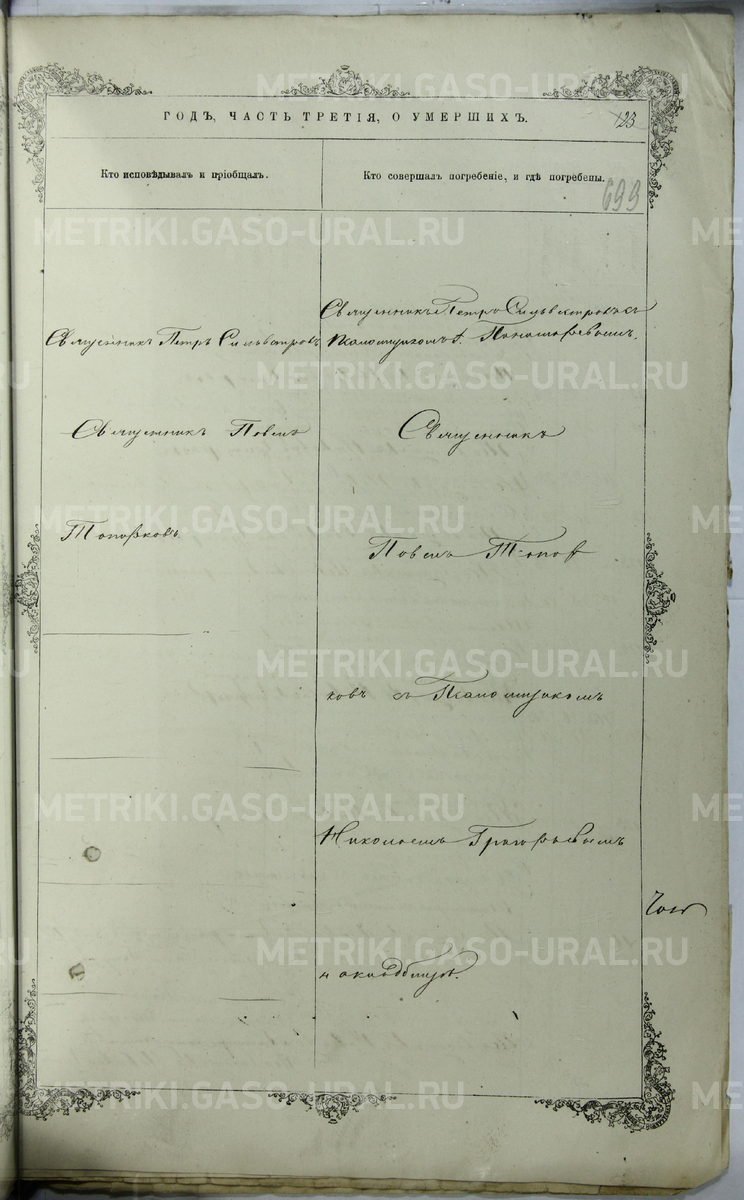 ГОДЪ, ЧАСТЬ ТРЕТІЯ, О УМЕРШИХЪ.
123
Кто исповѣдывалъ и пріобщалъ.
Кто совершалъ погребеніе, и гдѣ погребены.
699
Священникъ Петръ Сильвестровъ
Священникъ Павелъ
Топорковъ.
Священникъ Петръ Сильвестровъ съ
Псаломщикомъ Пономаревымъ.
Священникъ
Павелъ Топор
ковъ съ Псаломщикомъ
Николаемъ Григорьевымъ
METRIKI.GASO-URAL.RU